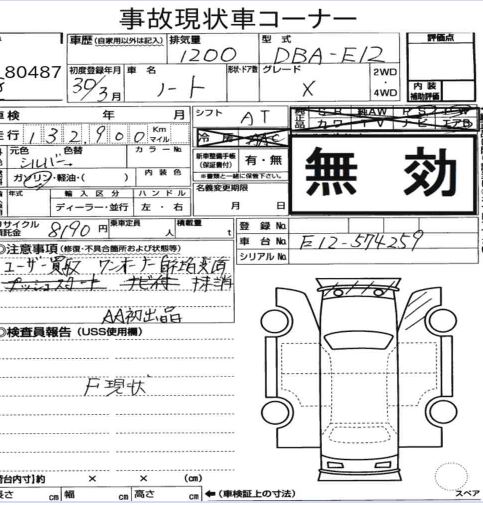 事故現状車コーナー
80487
車歴 (自家用以外は記入)
排気量 1200
型式 DBA-E12
評価点
初度登録年月 30/3月
車名 ノート
形状・ドア数
グレード X
2WD・4WD
内装補助評価
車検 年 月
シフト AT
走行 132,900 Km マイル
冷房 AAC
純AW
カワ TV ナビ エアB
元色 色替 シルバー
カラーNo.
新車整備手帳(保証書付) 有・無
※書類と一緒に保管下さい。
無効
ガソリン・軽油・( )
内装色
年式
輸入区分 ディーラー・並行
ハンドル 左・右
名義変更期限 月 日
リサイクル預託金 8190円
乗車定員 人
積載量 t
登録No.
車台No. E12-574259
シリアルNo.
◎注意事項 (修復・不具合箇所および状態等)
ユーザー買取 ワンオーナー
プッシュスタート ナビ 抹消
AA初出品
◎検査員報告 (USS使用欄)
F現状
荷台内寸) 約 × × (cm)
長さ cm 幅 cm 高さ cm
←(車検証上の寸法)
スペア